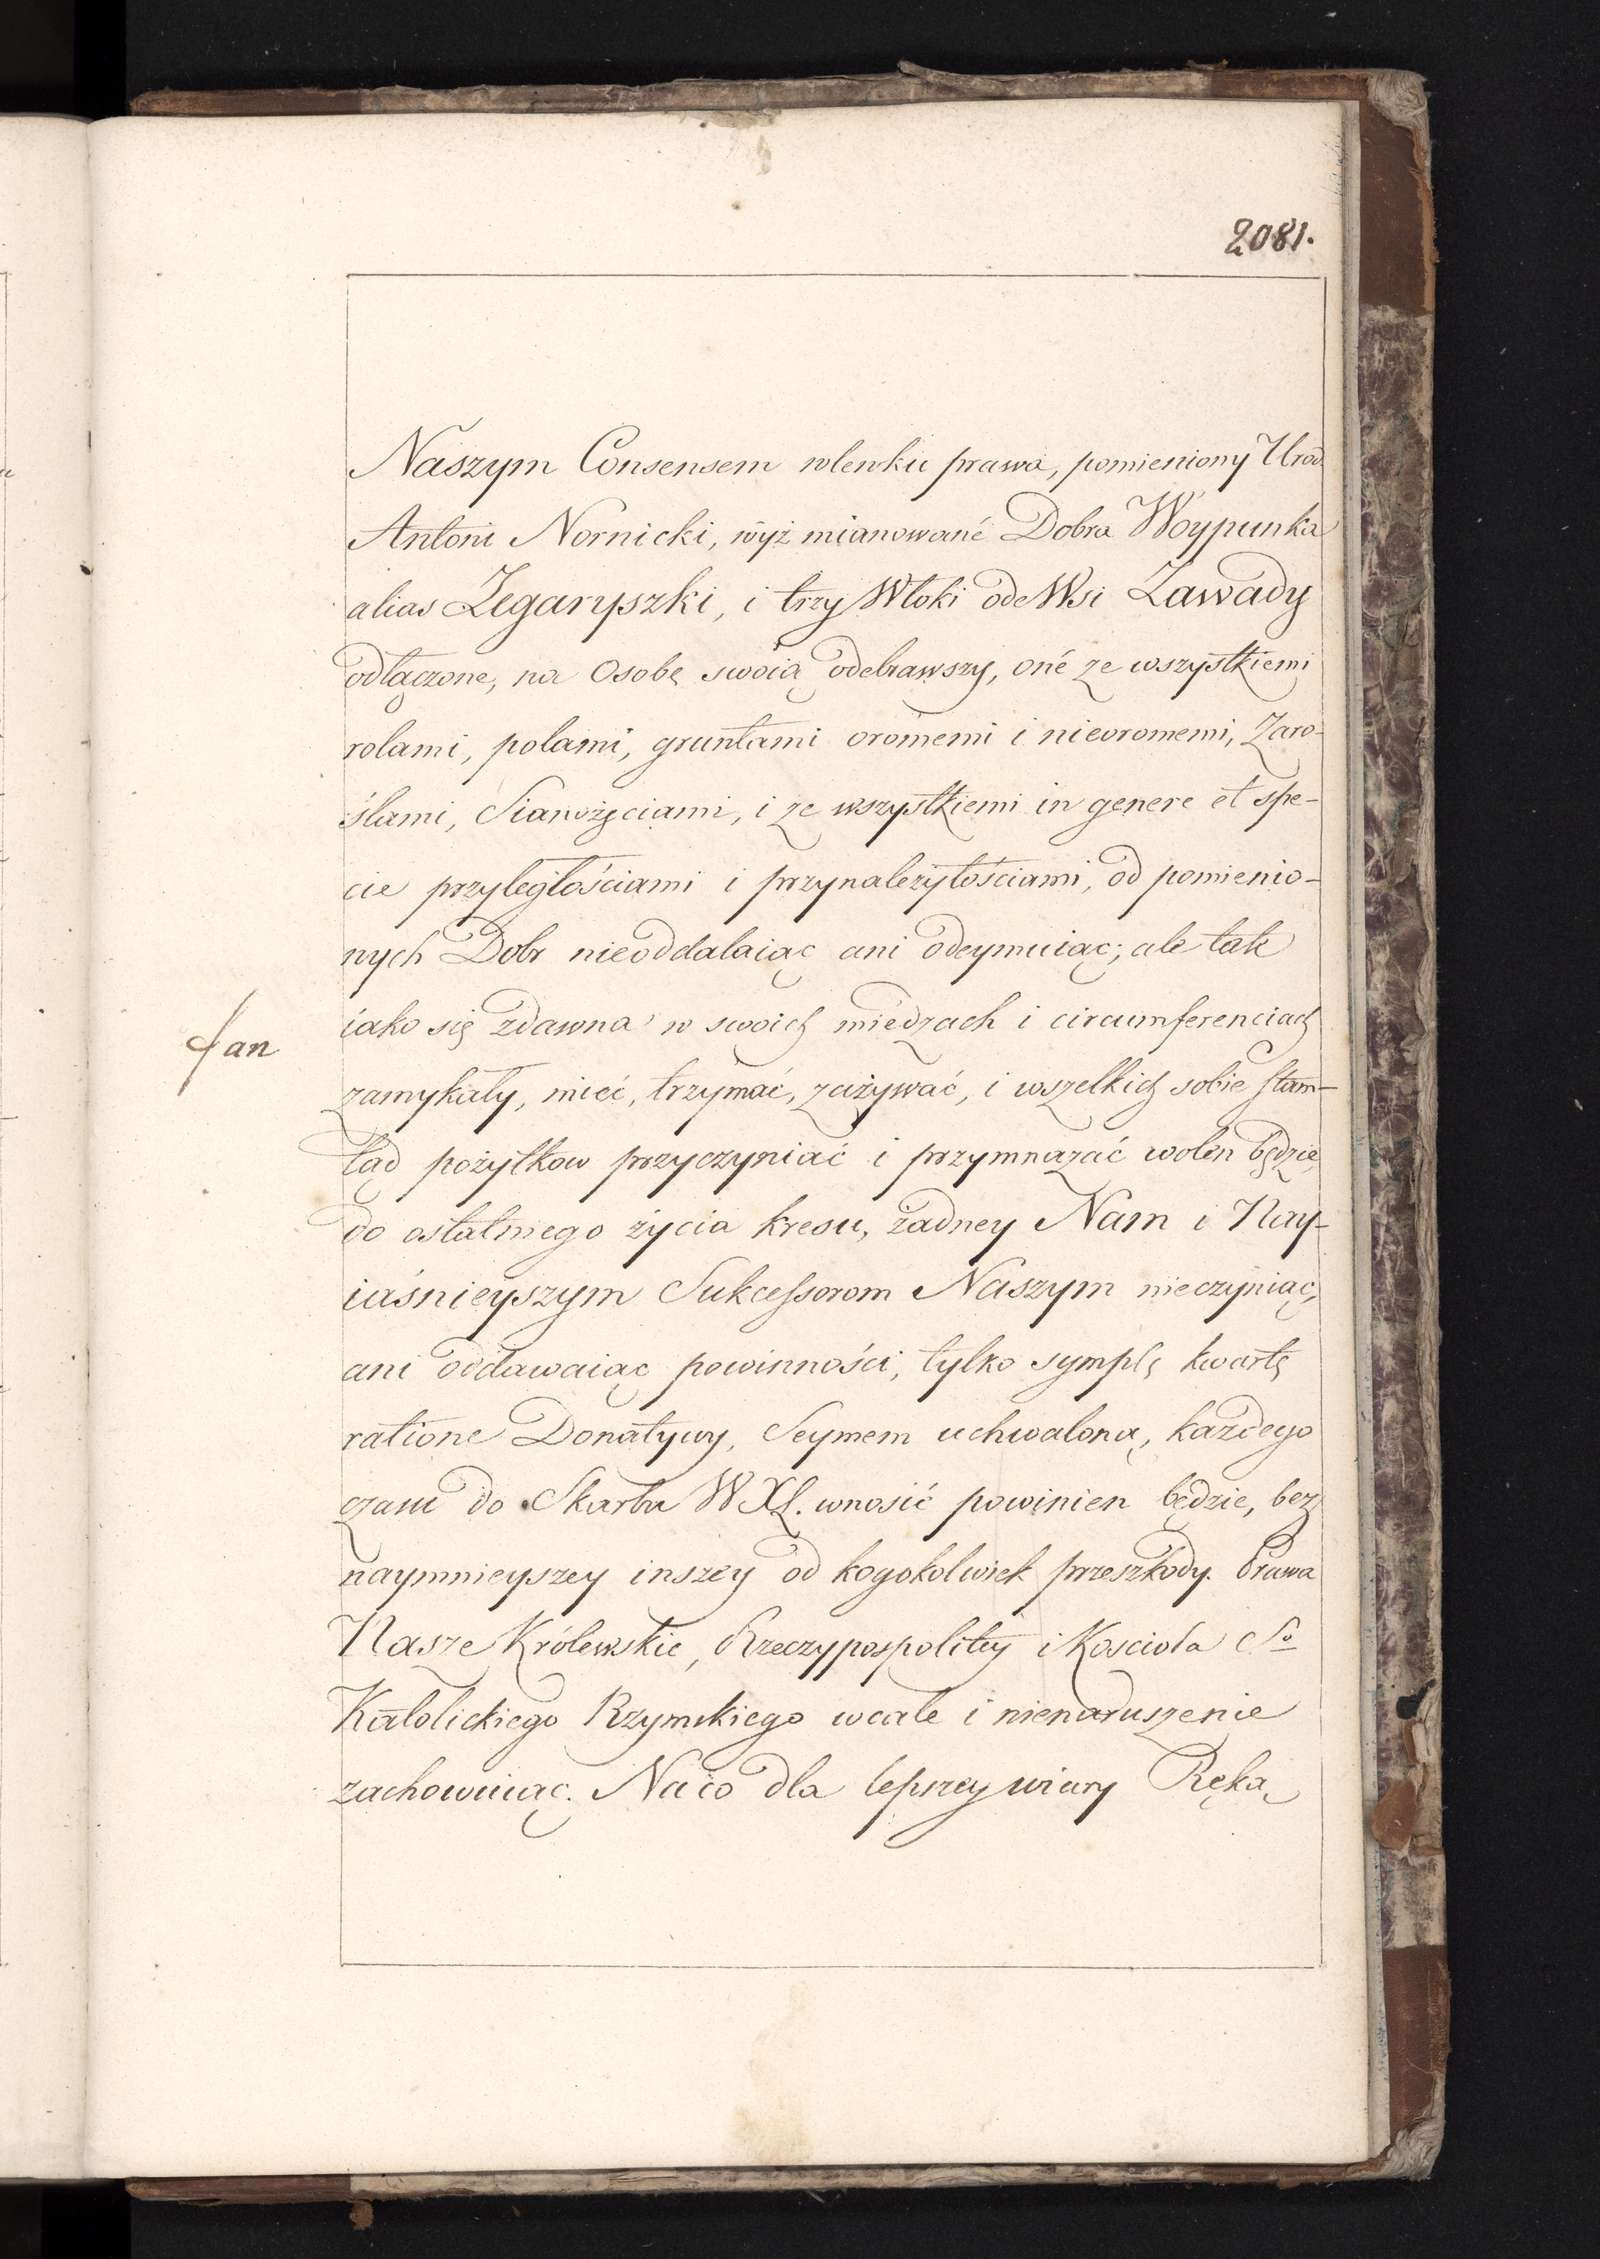 2081.
Naszym Consensem wlewku prawa, pomieniony Urod.
Antoni Nornicki, wyż mianowané Dobra Woypunka
alias Zegaryszki, i trzy Włoki ode Wsi Zawady
odłączone, na Osobę swoią odebrawszy, oné ze wszystkiemi
rolami, polami, gruntami oromemi i nieoromemi, Zaro-
ślami, Sianożęciami, i ze wszystkiemi in genere et spe-
cie przyległościami i przynależytościami, od pomienio-
nych Dobr nieoddalaiąc ani odeymuiąc; ale tak
iako się zdawna w swoich miedzach i circumferenciach
fan
zamykały, mieć, trzymać, zażywać, i wszelkich sobie stam-
tąd pożytkow przyczyniać i przymnażać wolen będzie,
do ostatniego życia kresu, żadney Nam i Nay-
iaśnieyszym Sukcessorom Naszym nieczyniąc,
ani oddawaiąc powinności, tylko symplę kwartę
ratione Donatywy, Seymem uchwaloną, każdego
czasu do Skarbu WXL. wnosić powinien będzie, bez
naymnieyszey inszey od kogokolwiek przeszkody. Prawa
Nasze Królewskie, Rzeczypospolitey i Kosciola So
Katolickiego Rzymskiego wcale i nienaruszenie
zachowuiąc. Naco dla lepszey wiary Ręką